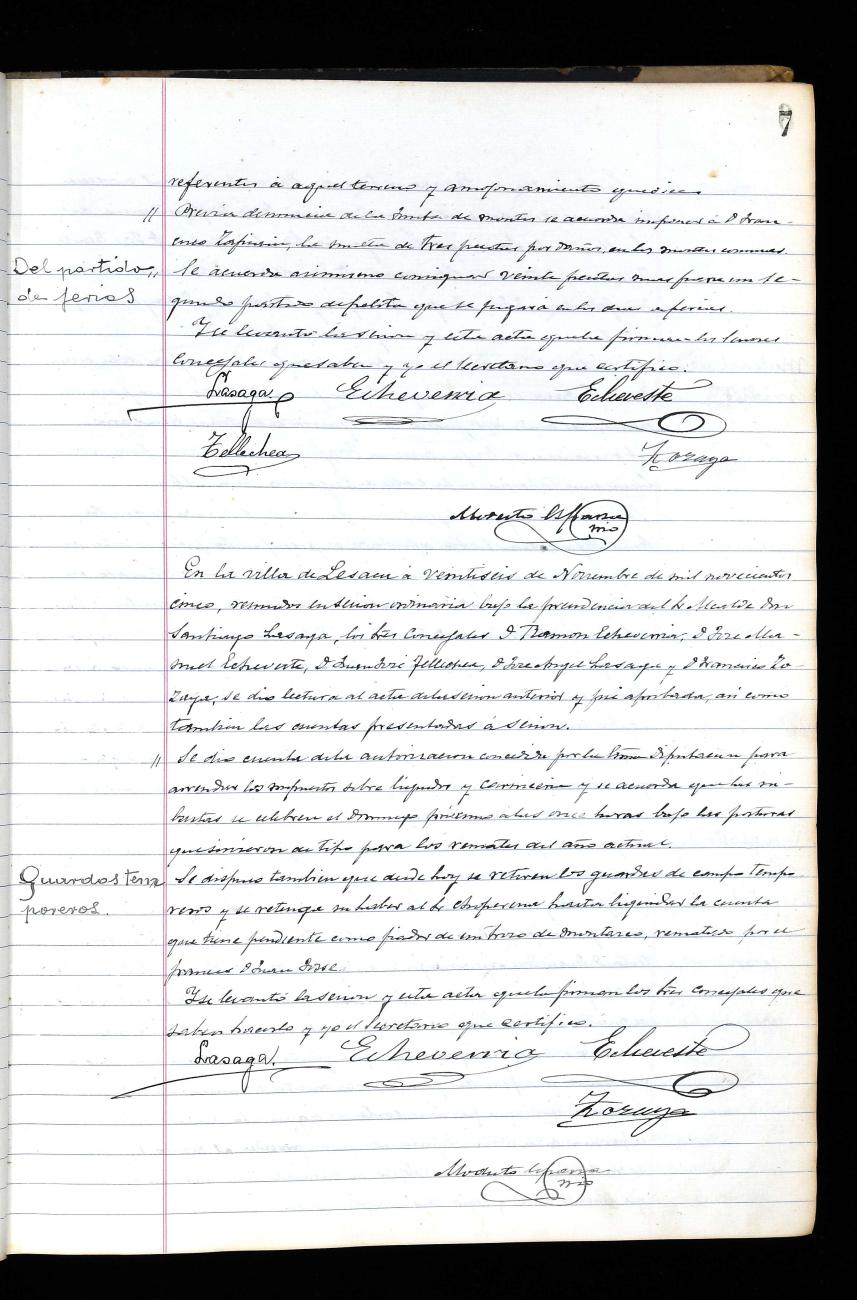 7
referentes á aquel terreno y amojonamiento que dice
// Previa denuncia de la Junta de montes se acuerda imponer á D Fran-
cisco la multa de tres pesetas por daños en los montes comunes.
Del partido //
de ferias
Se acuerda asimismo consignar veinte pesetas mas para un se-
gundo partido de pelota que se jugará en los dias de ferias.
Y se levantó la sesion y esta acta que la firman los Señores
Concejales que saben y yo el Secretario que certifico.
Lasaga Echeverria Echeveste
Tellechea Zozaya
Modesto Esparza
srio
En la villa de Lesaca á veintiseis de Noviembre de mil novecientos
cinco, reunidos en sesion ordinaria bajo la presidencia del Sr Alcalde Don
Santiago Lasaga, los Sres Concejales D. Ramon Echeverria, D. Jose Ma-
nuel Echeveste, D. Juan José Tellechea, D. Jose Angel Lasaga y D Francisco Zo-
zaya, se dió lectura al acta de la sesion anterior y fué aprobada, asi como
tambien las cuentas presentadas á sesion.
// Se dió cuenta de la autorizacion concedida por la Excma Diputacion para
arrendar los impuestos sobre liquidos y carniceria y se acuerda que las su-
bastas se celebren el Domingo próximo a las once horas bajo las posturas
que sirvieron de tipo para los remates del año actual.
Guardas tem
poreros.
Se dispuso tambien que desde hoy se retiren los guardas de campo tempo
reros y se retenga su haber al Sr hasta liquidar la cuenta
que tiene pendiente como fiador de un trozo de montazco, rematado por el
frances D Juan Jose.
Y se levantó la sesion y esta acta que la firman los Sres Concejales que
saben hacerlo y yo el Secretario que certifico.
Lasaga. Echeverria Echeveste
Zozaya
Modesto Esparza
srio